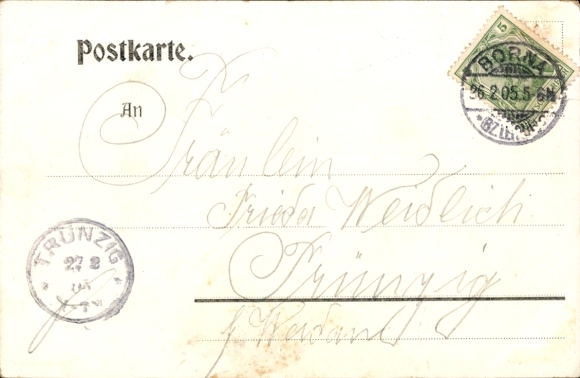 Postkarte.
5
BORNA
26.2.05.5-6N
*BZ. LEIPZIG*
An
Fräulein
Frieda Weidlich
Trünzig
TRÜNZIG
27 2
b/ Werdau